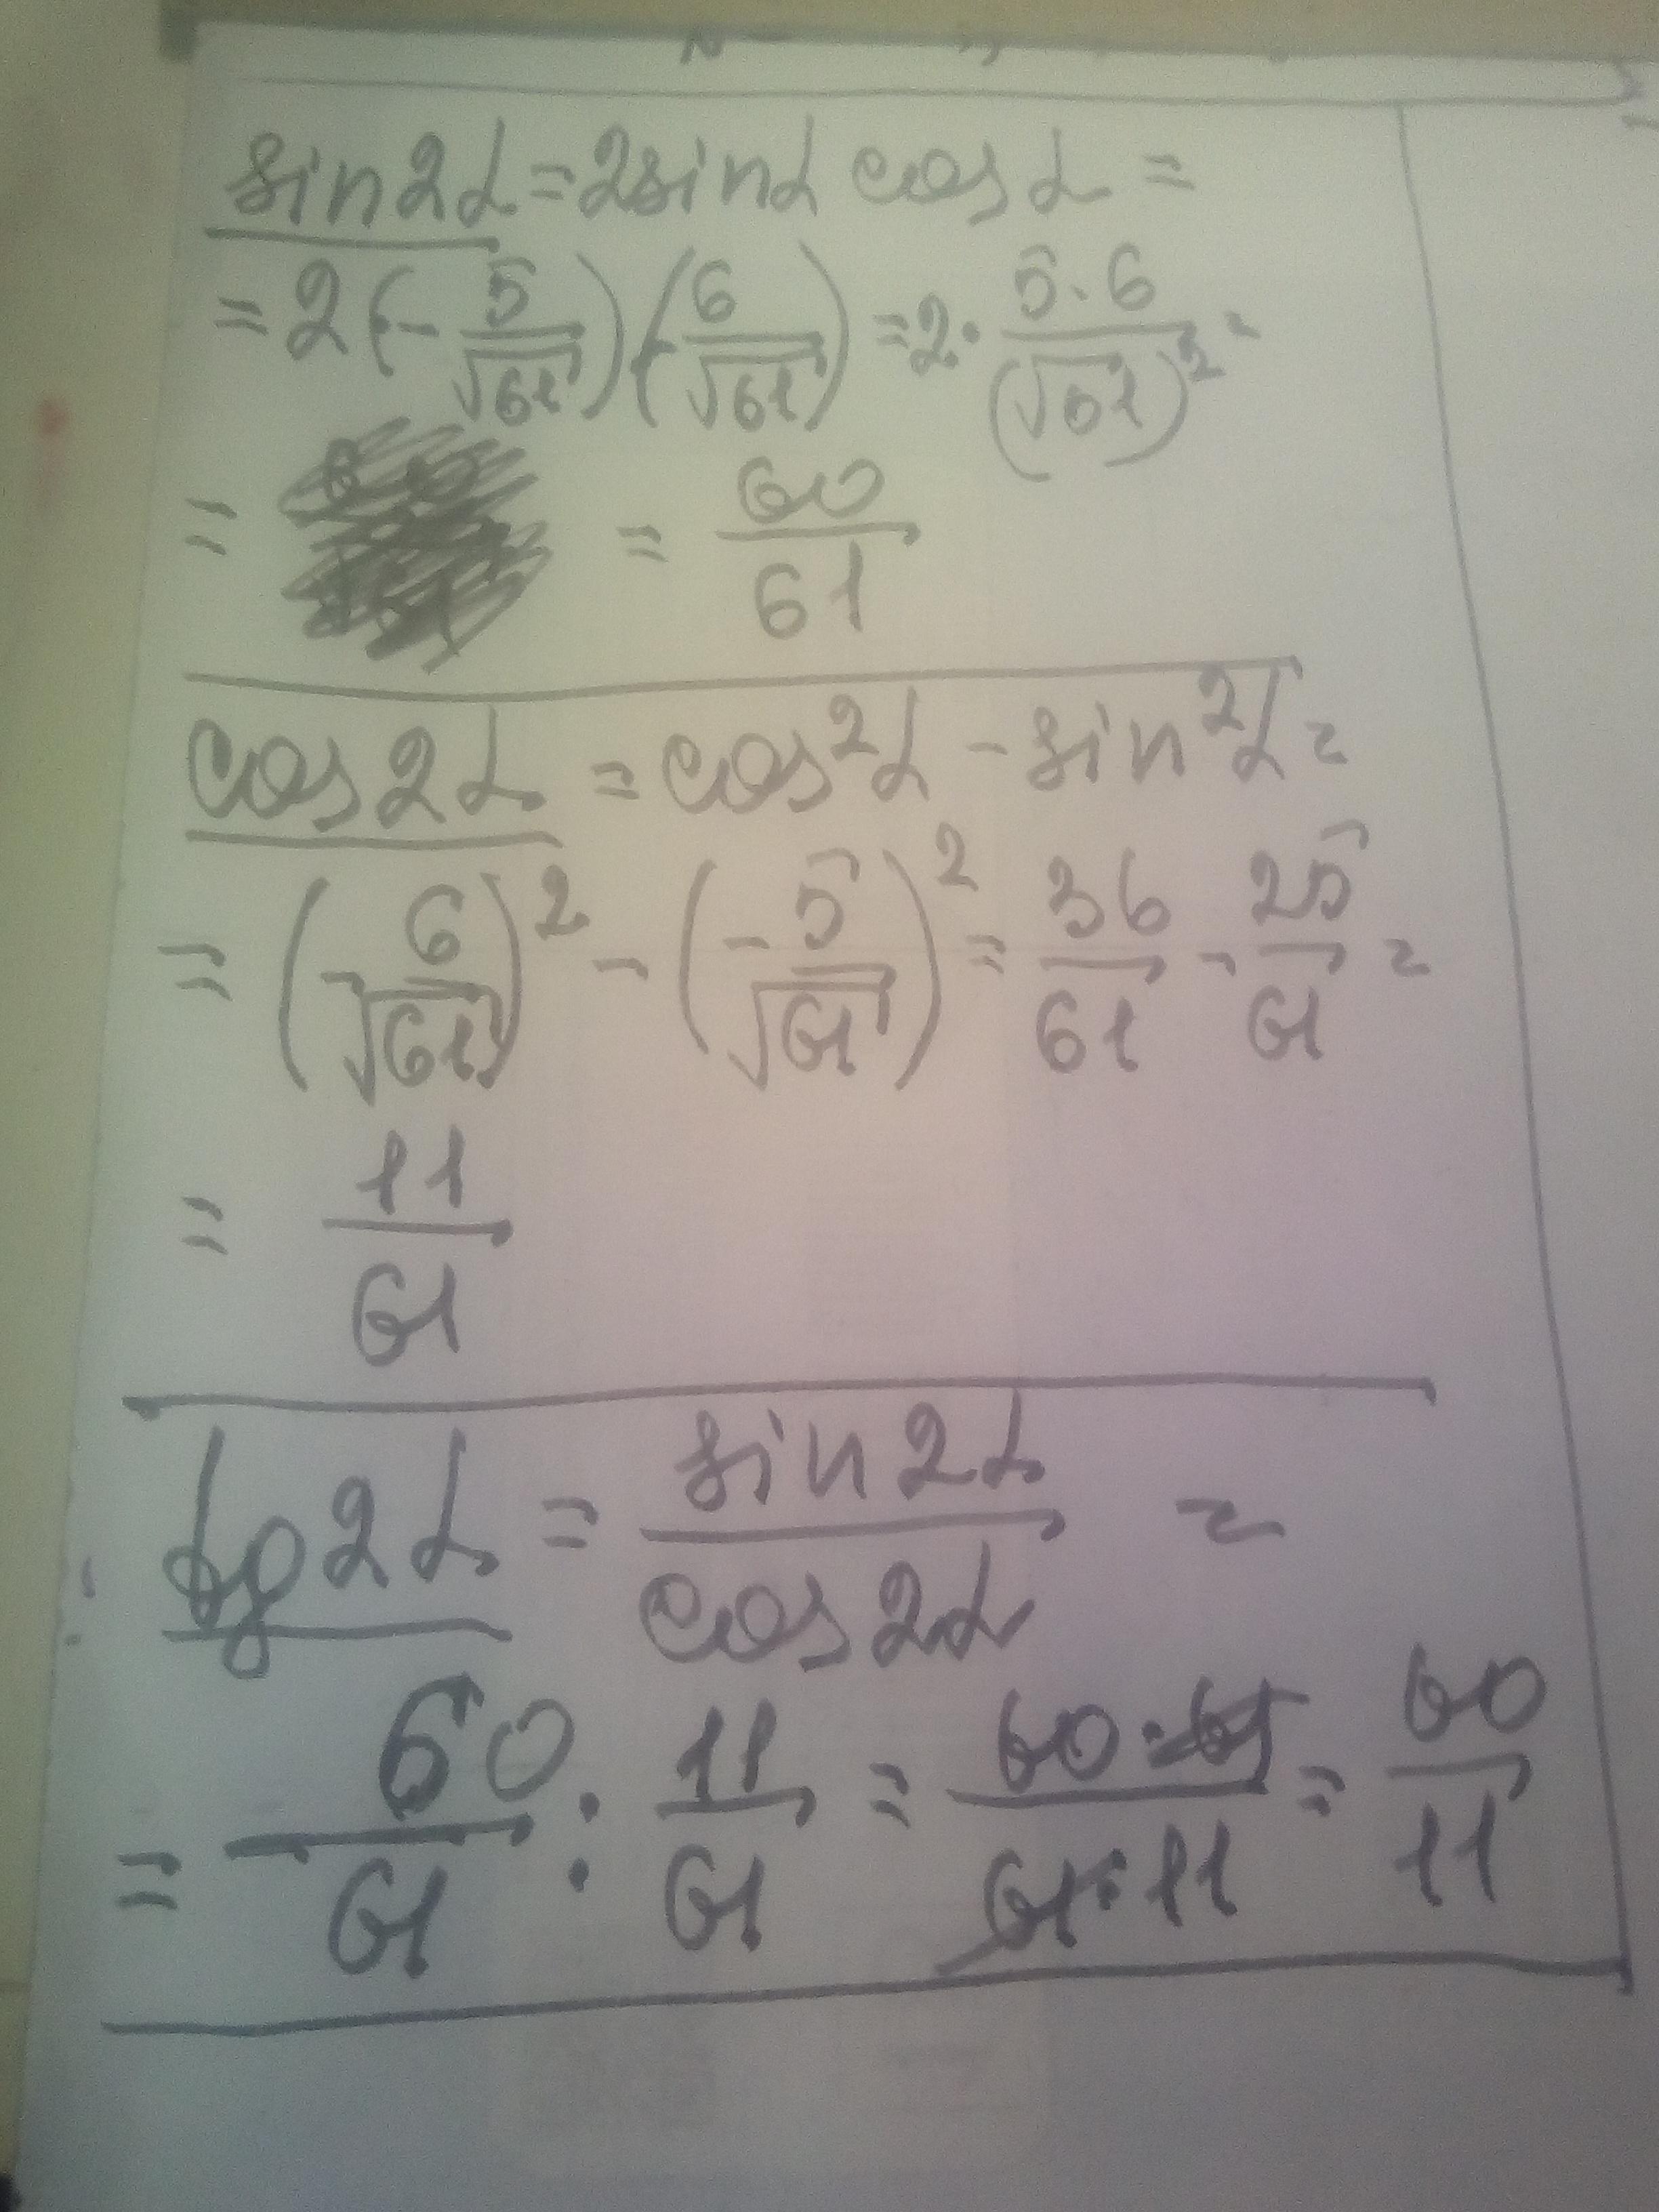 sin2α = 2sinα cosα =
= 2(-5/√61)(-6/√61) = 2·5·6/(√61)² =
= = 60/61
cos2α = cos²α - sin²α =
= (-6/√61)² - (-5/√61)² = 36/61 - 25/61 =
= 11/61
tg2α = sin2α/cos2α =
= 60/61 : 11/61 = 60·61/61·11 = 60/11